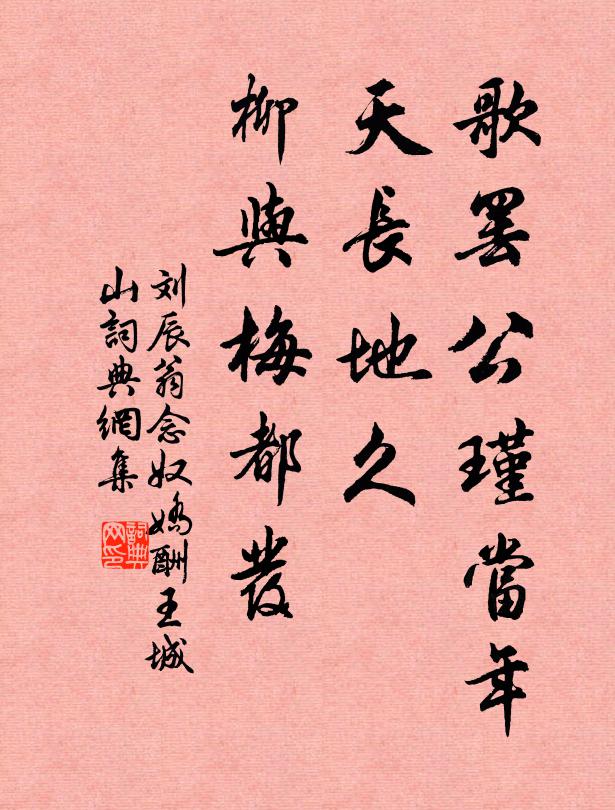 歌罢公瑾當年
天長地久
柳與梅都發
刘辰翁念奴嬌酬王城
山詞典網集
詞典网印